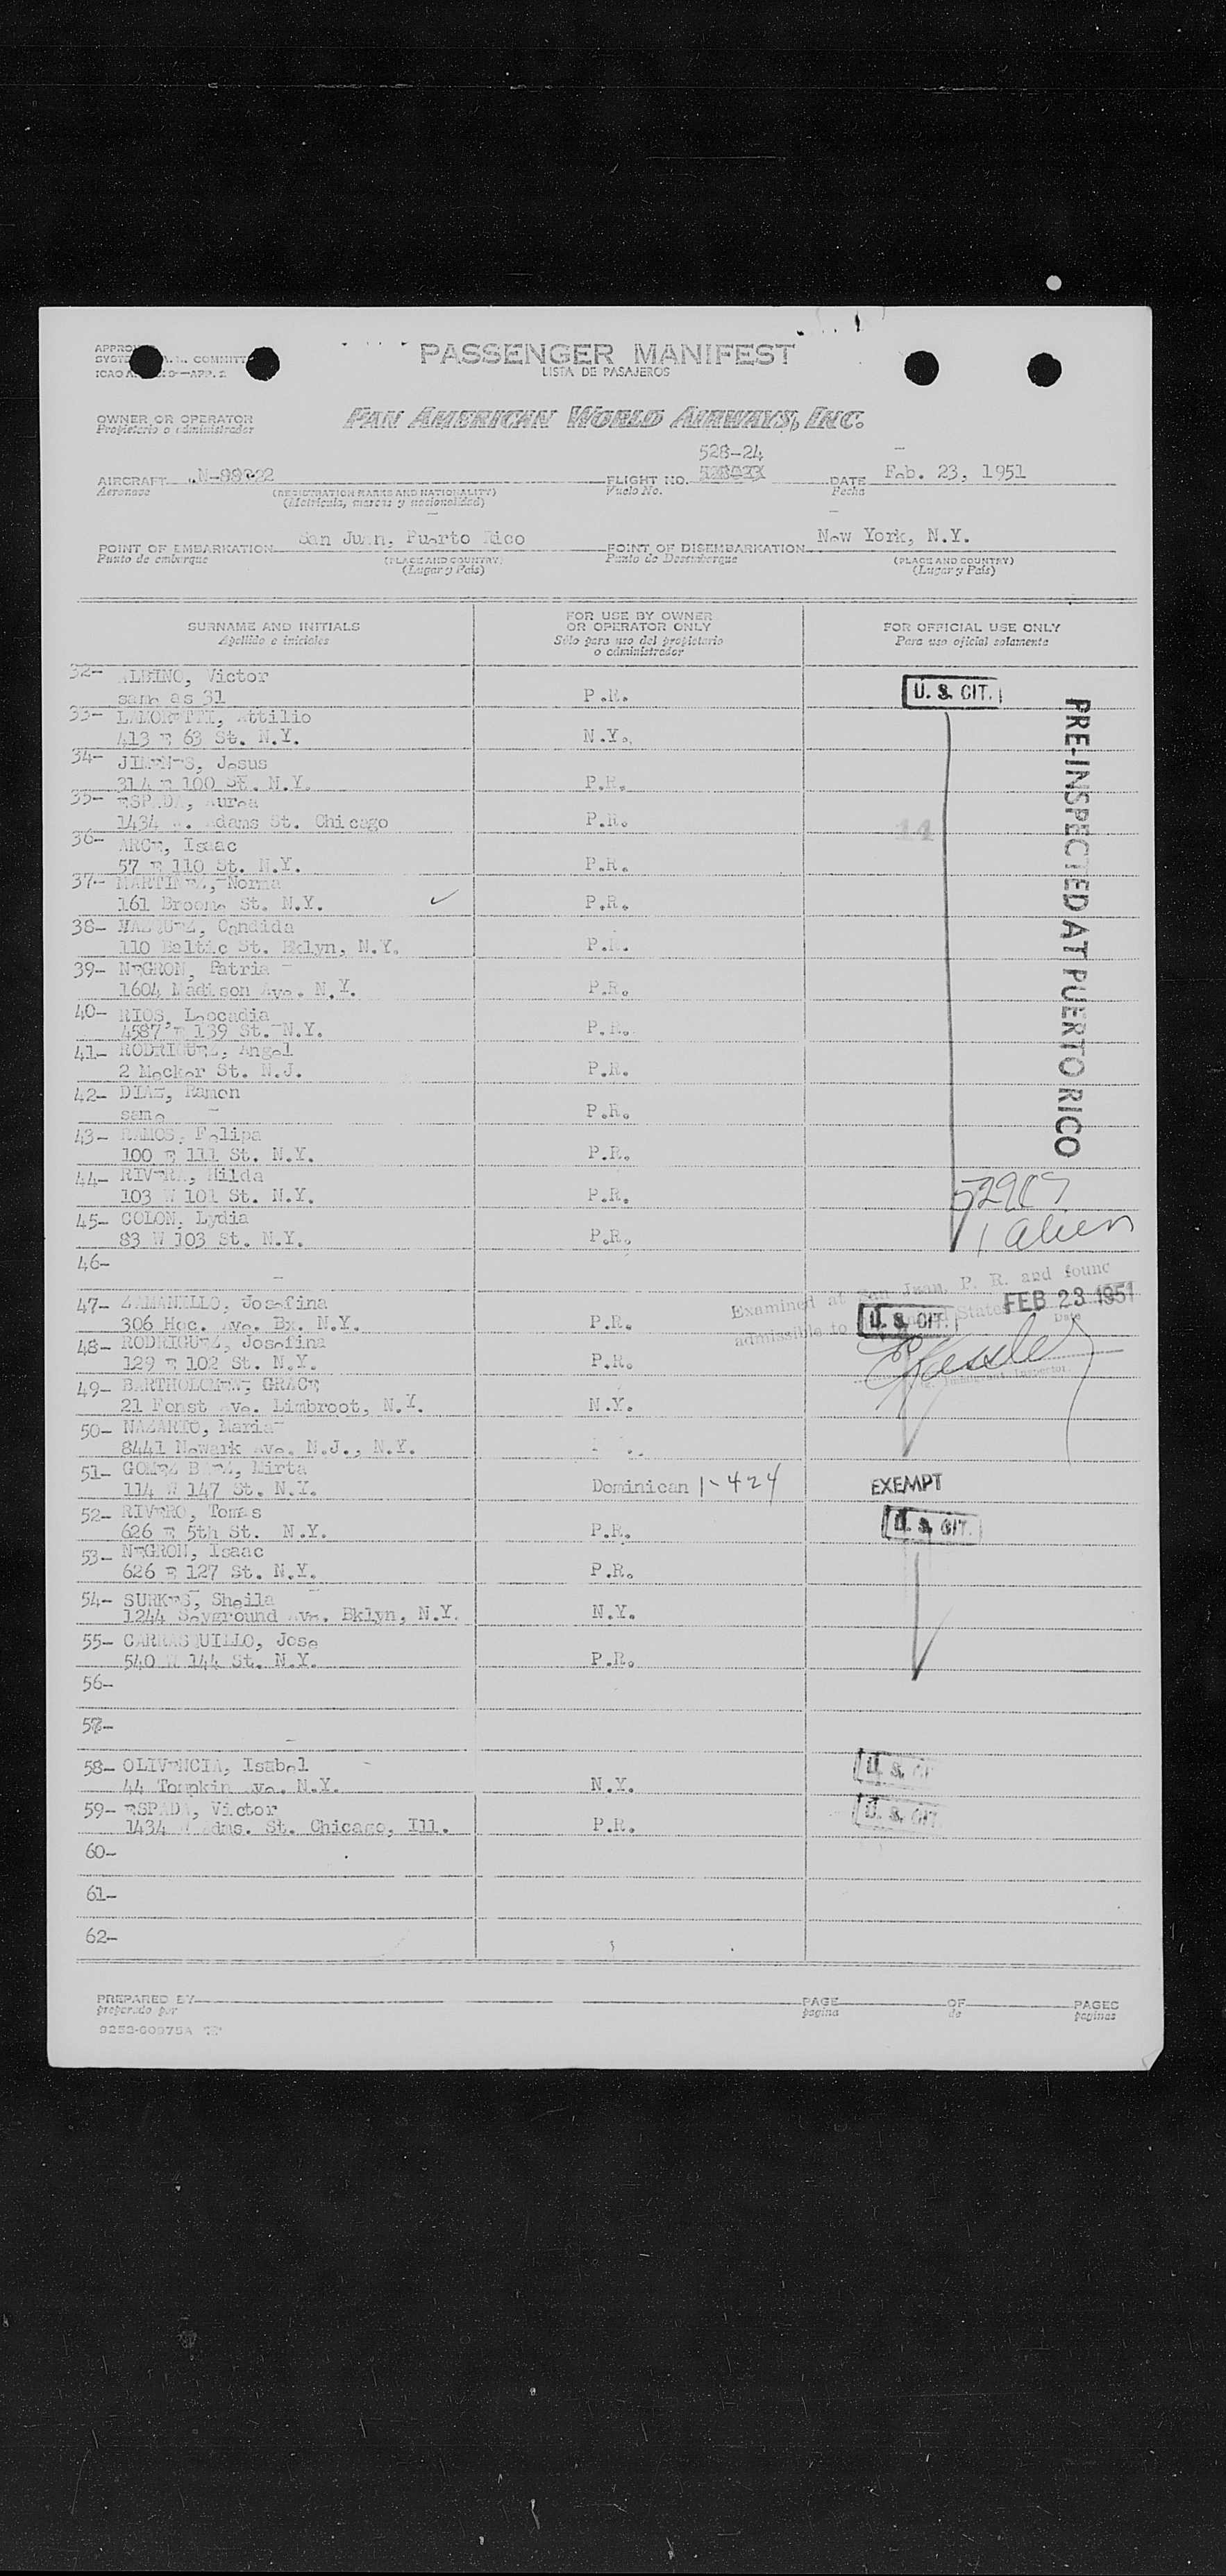 PASSENGER MANIFEST
LISTA DE PASAJEROS
ICAO
OWNER OR OPERATOR
Propietario o administrador
PAN AMERICAN WORLD AIRWAYS, INC.
528-24
AIRCRAFT
Aeronave
(REGISTRATION MARKS AND NATIONALITY)
(Matricula, marcas y nacionalidad)
FLIGHT NO.
Vuelo No.
DATE Feb. 23, 1951
Fecha
POINT OF EMBARKATION San Juan, Puerto Rico
Punto de embarque
(PLACE AND COUNTRY)
(Lugar y País)
POINT OF DISEMBARKATION New York, N.Y.
Punto de Desembarque
(PLACE AND COUNTRY)
(Lugar y País)
SURNAME AND INITIALS
Apellido e iniciales
FOR USE BY OWNER
OR OPERATOR ONLY
Sólo para uso del propietario
o administrador
FOR OFFICIAL USE ONLY
Para uso oficial solamente
32- ALBINO, Victor
same as 31 P.R. U. S. CIT.
33- Attilio
413 E 63 St. N.Y. N.Y.
34- JIMENES, Jesus
314 E 100 St. N.Y. P.R.
35- ESPADA, Aurea
1434 W. Adams St. Chicago P.R.
14
36- ARCE, Isaac
57 E 110 St. N.Y. P.R.
37- MARTINEZ, Norma
161 Broome St. N.Y. P.R.
38- VAZQUEZ, Candida
110 Baltic St. Bklyn, N.Y. P.R.
39- NEGRON, Patria
1604 Madison Ave. N.Y. P.R.
40- RIOS, Leocadia
4587 E 139 St. N.Y. P.R.
41- RODRIGUEZ, Angel
2 Mecker St. N.J. P.R.
42- DIAZ, Ramon
same P.R.
43- RAMOS, Felipa
100 E 111 St. N.Y. P.R.
44- RIVERA, Hilda
103 W 101 St. N.Y. P.R.
45- COLON, Lydia
83 W 103 St. N.Y. P.R.
PRE-INSPECTED AT PUERTO RICO
1 alien
46-
Examined at San Juan, P. R. and found
admissible to States FEB 23 1951
Date
47- ZAMANELLO, Josefina
306 Hoc. Ave. Bx. N.Y. P.R. U. S. CIT.
48- RODRIGUEZ, Josefina
129 E 102 St. N.Y. P.R.
Immigrant Inspector
49- BARTHOLOMEW, GRACE
21 Fonst Ave. Limbroot, N.Y. N.Y.
50- NAZARIO, Maria
8441 Newark Ave. N.J., N.Y.
51- GOMEZ BAEZ, Mirta
114 W 147 St. N.Y. Dominican 1-424 EXEMPT
52- RIVERO, Tomas
626 E 5th St. N.Y. P.R. U. S. CIT.
53- NEGRON, Isaac
626 E 127 St. N.Y. P.R.
54- SURKES, Sheila
1244 Seyground Ave. Bklyn, N.Y. N.Y.
55- CARRASQUILLO, Jose
540 W 144 St. N.Y. P.R.
56-
57-
58- OLIVENCIA, Isabel U. S. CIT
44 Tompkin Ave. N.Y. N.Y.
59- ESPADA, Victor U. S. CIT.
1434 W Adms. St. Chicago, Ill. P.R.
60-
61-
62-
PREPARED BY
preparado por
PAGE OF PAGES
pagina de paginas